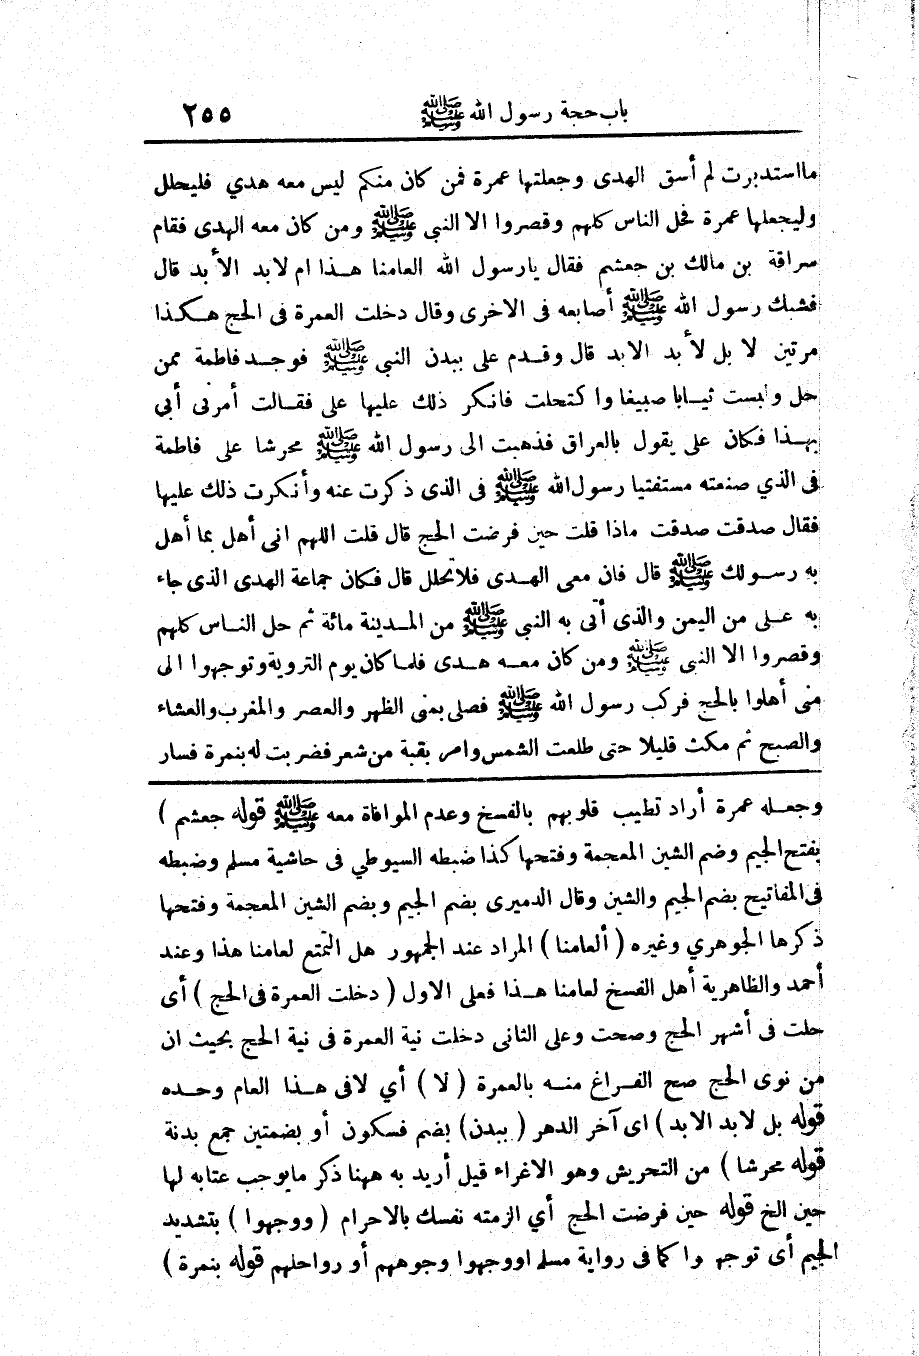 باب حجة رسول الله ﷺ ٢٥٥
مااستدبرت لم أسق الهدى وجعلتها عمرة فمن كان منكم ليس معه هدي فليحلل
وليجعلها عمرة فحل الناس كلهم وقصروا الا النبى ﷺ ومن كان معه الهدى فقام
سراقة بن مالك بن جعشم فقال يارسول الله العامنا هـذا ام لابد الأبد قال
فشبك رسول الله ﷺ أصابعه فى الاخرى وقال دخلت العمرة فى الحج هـكـذا
مرتين لا بل لأبد الابد قال وقـدم على ببدن النبى ﷺ فوجـد فاطمة ممن
حل ولبست ثيـابا صبيغا واكتحلت فانكر ذلك عليها على فقـالت أمرنى أبي
بهـذا فكان على يقول بالعراق فذهبت الى رسول الله ﷺ محرشا على فاطمة
فى الذي صنعته مستفتيا رسول الله ﷺ فى الذى ذكرت عنه وأنكرت ذلك عليها
فقال صدقت صدقت ماذا قلت حين فرضت الحج قال قلت اللهم انى أهل بما أهل
به رسـولك ﷺ قال فان معى الهـدى فلاتحلل قال فكان جماعة الهدى الذى جاء
به عـلى من اليمن والذى أتى به النبى ﷺ من المـدينة مائة ثم حل النـاس كلهم
وقصروا الا النبى ﷺ ومن كان معـه هـدى فلما كان يوم التروية وتوجهوا الى
منى أهلوا بالحج فركب رسول الله ﷺ فصلى بمنى الظهر والعصر والمغرب والعشاء
والصبح ثم مكث قليلا حتى طلعت الشمس وامر بقبة من شعر فضربت له بنمرة فسار
وجعـله عمرة أراد تطيب قلوبهم بالفسخ وعدم الموافاة معه ﷺ قوله جعشم )
بفتح الجيم وضم الشين المعجمة وفتحها كذا ضبطه السيوطي فى حاشية مسلم وضبطه
فى المفاتيح بضم الجيم والشين وقال الدميرى بضم الجيم وبضم الشين المعجمة وفتحها
ذكرها الجوهري وغيره ( ألعامنا ) المراد عند الجمهور هل التمتع لعامنا هذا وعند
أحمد والظاهرية أهل الفسخ لعامنا هـذا فعلى الاول ( دخلت العمرة فى الحج ) أى
حلت فى أشهر الحج وصحت وعلى الثانى دخلت نية العمرة فى نية الحج بحيث ان
من نوى الحج صح الفـراغ منـه بالعمرة ( لا ) أي لافى هـذا العام وحـده
قوله بل لابد الابد ) اى آخر الدهر ( ببدن ) بضم فسكون أو بضمتين جمع بدنة
قوله محرشا ) من التحريش وهو الاغراء قيل أريد به ههنا ذكر مايوجب عتابه لها
حين الخ قوله حين فرضت الحج أي الزمته نفسك بالاحرام ( ووجهوا ) بتشديد
الجيم أى توجهوا كما فى رواية مسلم اووجهوا وجوههم أو رواحلهم قوله بنمرة )